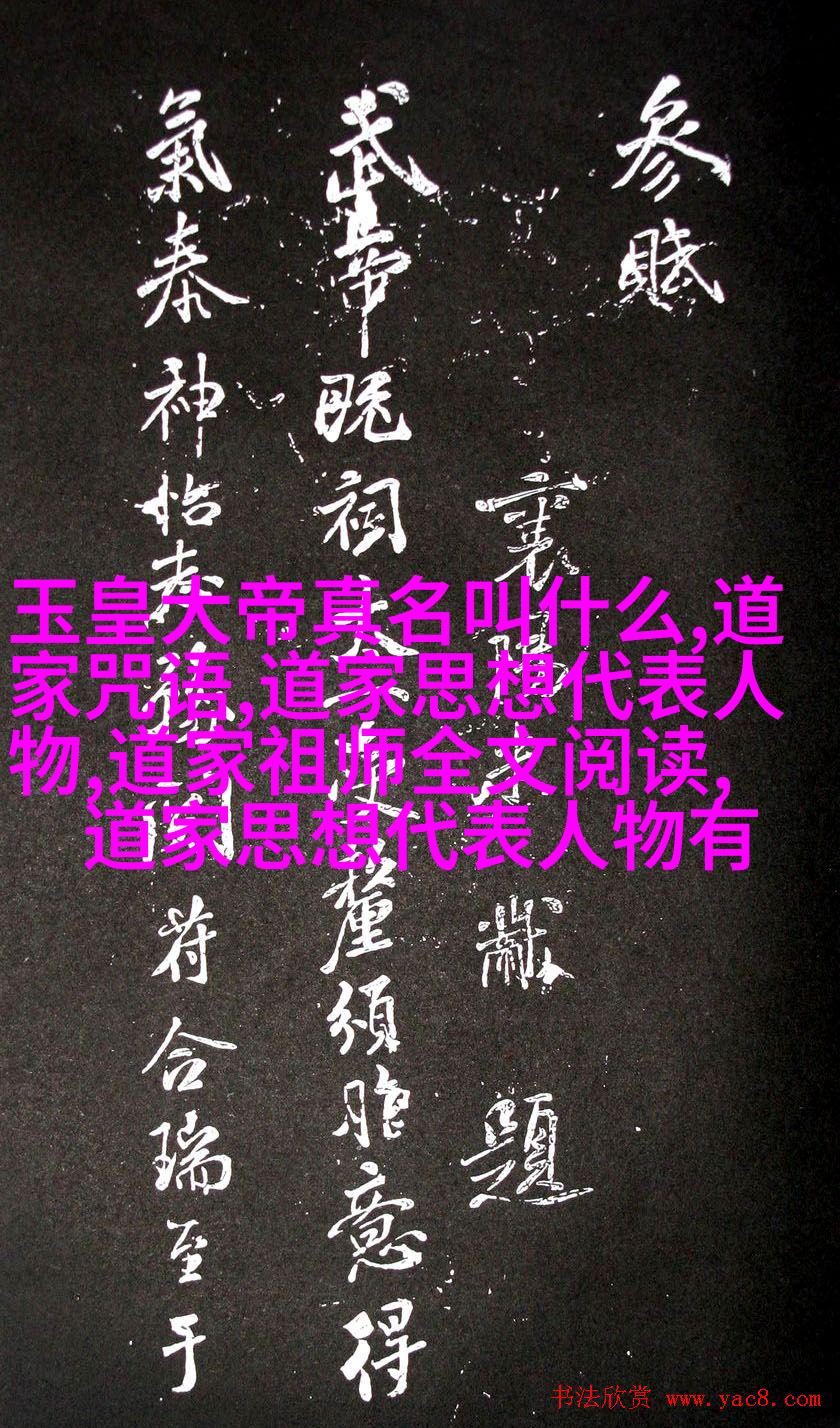 参賦
襄陽米黻題
武帝既祠太一
釐須胙意得
氣泰神怡
符合瑞至于
玉皇大帝真名叫什么,道
家咒语,道家思想代表人
物,道家祖师全文阅读,
道家思想代表人物有
书法欣赏 www.yac8.com